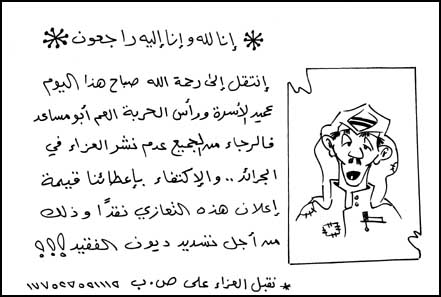 إنا لله وإنا إليه راجعون
إنتقل إلى رحمة الله صباح هذا اليوم
عميد الأسرة ورأس الحربة العم أبو مساعد
فالرجاء من الجميع عدم نشر العزاء في
الجرائد .. والإكتفاء بإعطائنا قيمة
إعلان هذه التعازي نقدًا وذلك
من أجل تسديد ديون الفقيد !!!
* نقبل العزاء على ص.ب